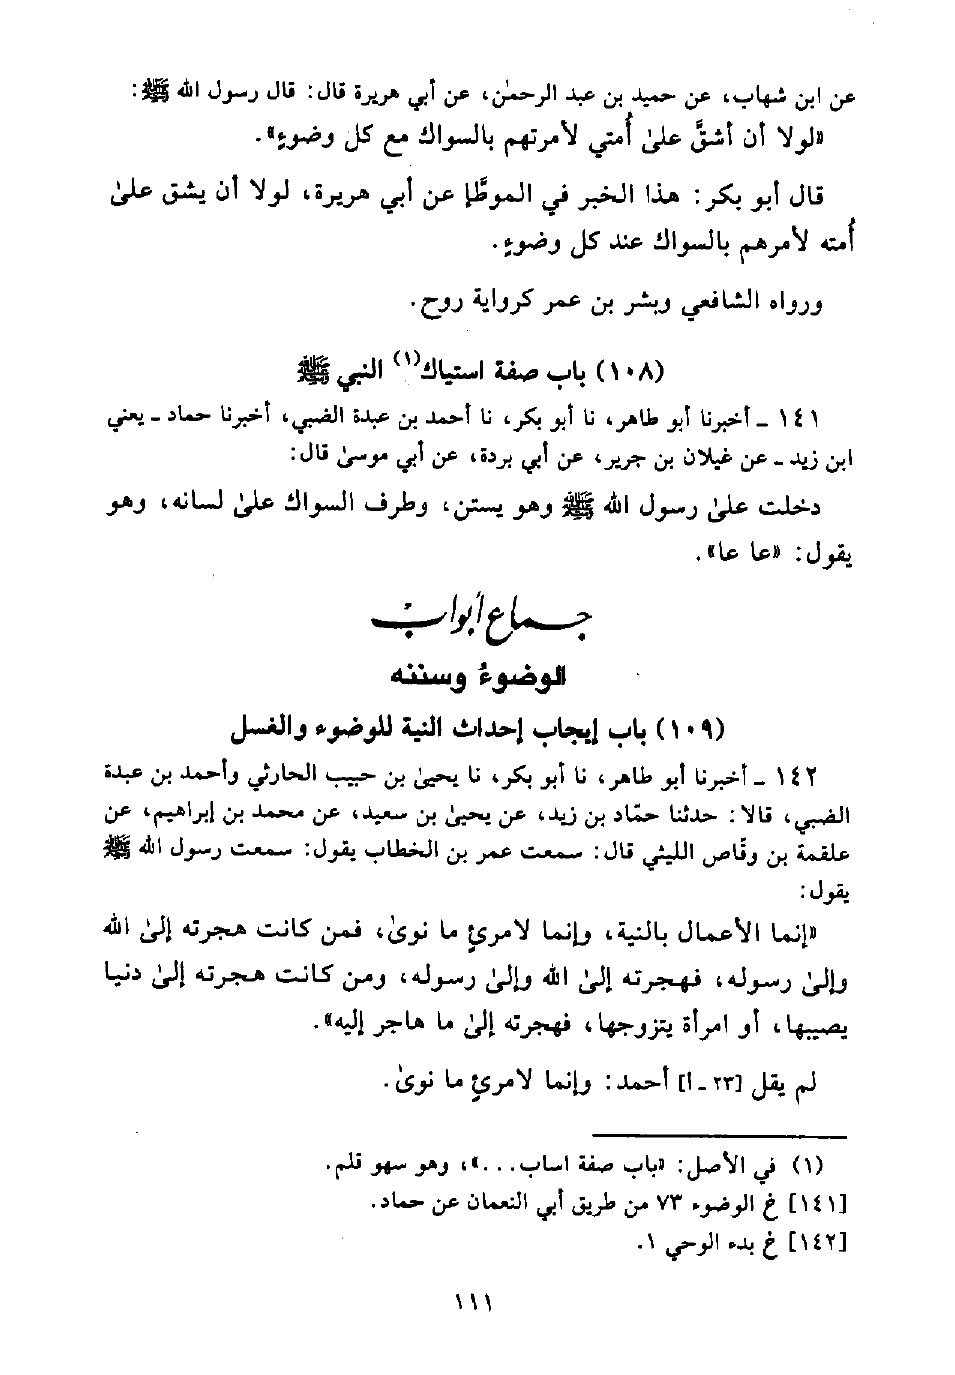 عن ابن شهاب، عن حميد بن عبد الرحمٰن، عن أبي هريرة قال: قال رسول الله ﷺ:
«لولا أن أشقَّ علىٰ أُمتي لأمرتهم بالسواك مع كل وضوءٍ».
قال أبو بكر: هذا الخبر في الموطَّإ عن أبي هريرة، لولا أن يشق علىٰ
أُمته لأمرهم بالسواك عند كل وضوءٍ.
ورواه الشافعي وبشر بن عمر كرواية روح.
(١٠٨) باب صفة استياك(١) النبي ﷺ
١٤١ ـ أخبرنا أبو طاهر، نا أبو بكر، نا أحمد بن عبدة الضبي، أخبرنا حماد ـ يعني
ابن زيد ـ عن غيلان بن جرير، عن أبي بردة، عن أبي موسىٰ قال:
دخلت علىٰ رسول الله ﷺ وهو يستن، وطرف السواك علىٰ لسانه، وهو
يقول: «عا عا».
جماع أبواب
الوضوءُ وسننه
(١٠٩) باب إيجاب إحداث النية للوضوء والغسل
١٤٢ ـ أخبرنا أبو طاهر، نا أبو بكر، نا يحيىٰ بن حبيب الحارثي وأحمد بن عبدة
الضبي، قالا: حدثنا حمّاد بن زيد، عن يحيىٰ بن سعيد، عن محمد بن إبراهيم، عن
علقمة بن وقّاص الليثي قال: سمعت عمر بن الخطاب يقول: سمعت رسول الله ﷺ
يقول:
«إنما الأعمال بالنية، وإنما لامرئٍ ما نوىٰ، فمن كانت هجرته إلىٰ الله
وإلىٰ رسوله، فهجرته إلىٰ الله وإلىٰ رسوله، ومن كانت هجرته إلىٰ دنيا
يصيبها، أو امرأة يتزوجها، فهجرته إلىٰ ما هاجر إليه».
لم يقل [٢٣ ـ ا] أحمد: وإنما لامرئٍ ما نوىٰ.
(١) في الأصل: «باب صفة اساب...»، وهو سهو قلم.
[١٤١] خ الوضوء ٧٣ من طريق أبي النعمان عن حماد.
[١٤٢] خ بدء الوحي ١.
١١١